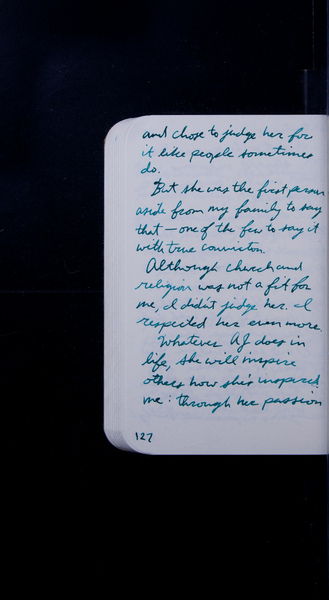 and chose to judge her for
it like people sometimes
do.
But she was the first person
aside from my family to say
that — one of the few to say it
with true conviction.
Although church and
religion was not a fit for
me, I didn't judge her. I
respected her even more.
Whatever AJ does in
life, she will inspire
others how she's inspired
me: through her passion
127